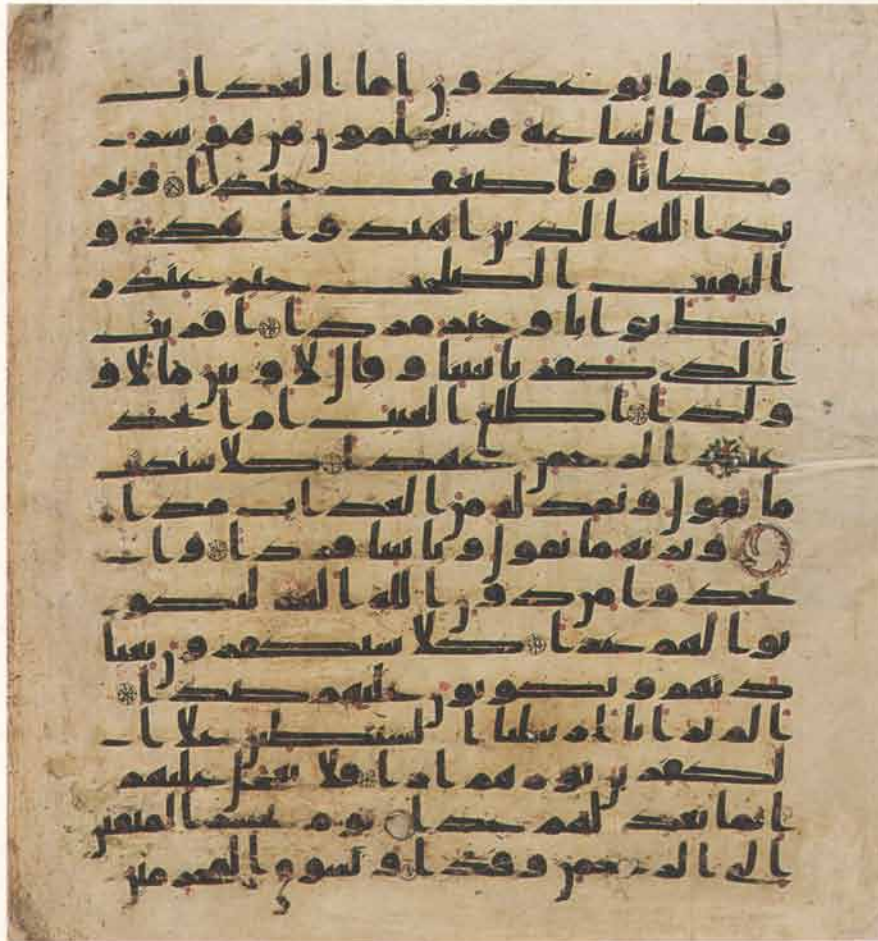 راو ما يوعدون اما العذاب
واما الساعة فسيعلمون من هو شر
مكانا واضعف جندا ويز
يد الله الذين اهتدوا هدى و
البقيت الصلحت خير عند ر
بك ثوابا وخير مردا افريت
الذي كفر بايتنا وقال لاوتين مالا و
ولدا اطلع الغيب ام اتخذ
عند الرحمن عهدا كلا سنكتب
ما يقول ونمد له من العذاب مدا
ونرثه ما يقول وياتينا فردا وا
تخذوا من دون الله الهة ليكو
نوا لهم عزا كلا سيكفرون بعبا
دتهم ويكونون عليهم ضدا
الم تر انا ارسلنا الشيطين على ا
لكفرين توزهم ازا فلا تعجل عليهم
انما نعد لهم عدا يوم نحشر المتقين
الى الرحمن وفدا ونسوق المجرمين